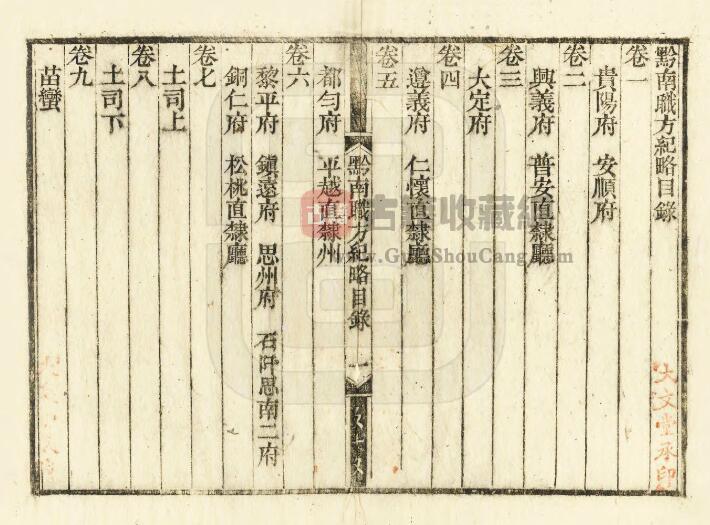 黔南職方紀略目錄
卷一
貴陽府　安順府
卷二
興義府　普安直隸廳
卷三
大定府
卷四
遵義府　仁懷直隸廳
卷五
黔南職方紀略目錄　一
都勻府　平越直隸州
卷六
黎平府　鎮遠府　思州府　石阡思南二府
銅仁府　松桃直隸廳
卷七
土司上
卷八
土司下
卷九
苗蠻
大文堂承印
古籍收藏
www.GuJiShouCang.com